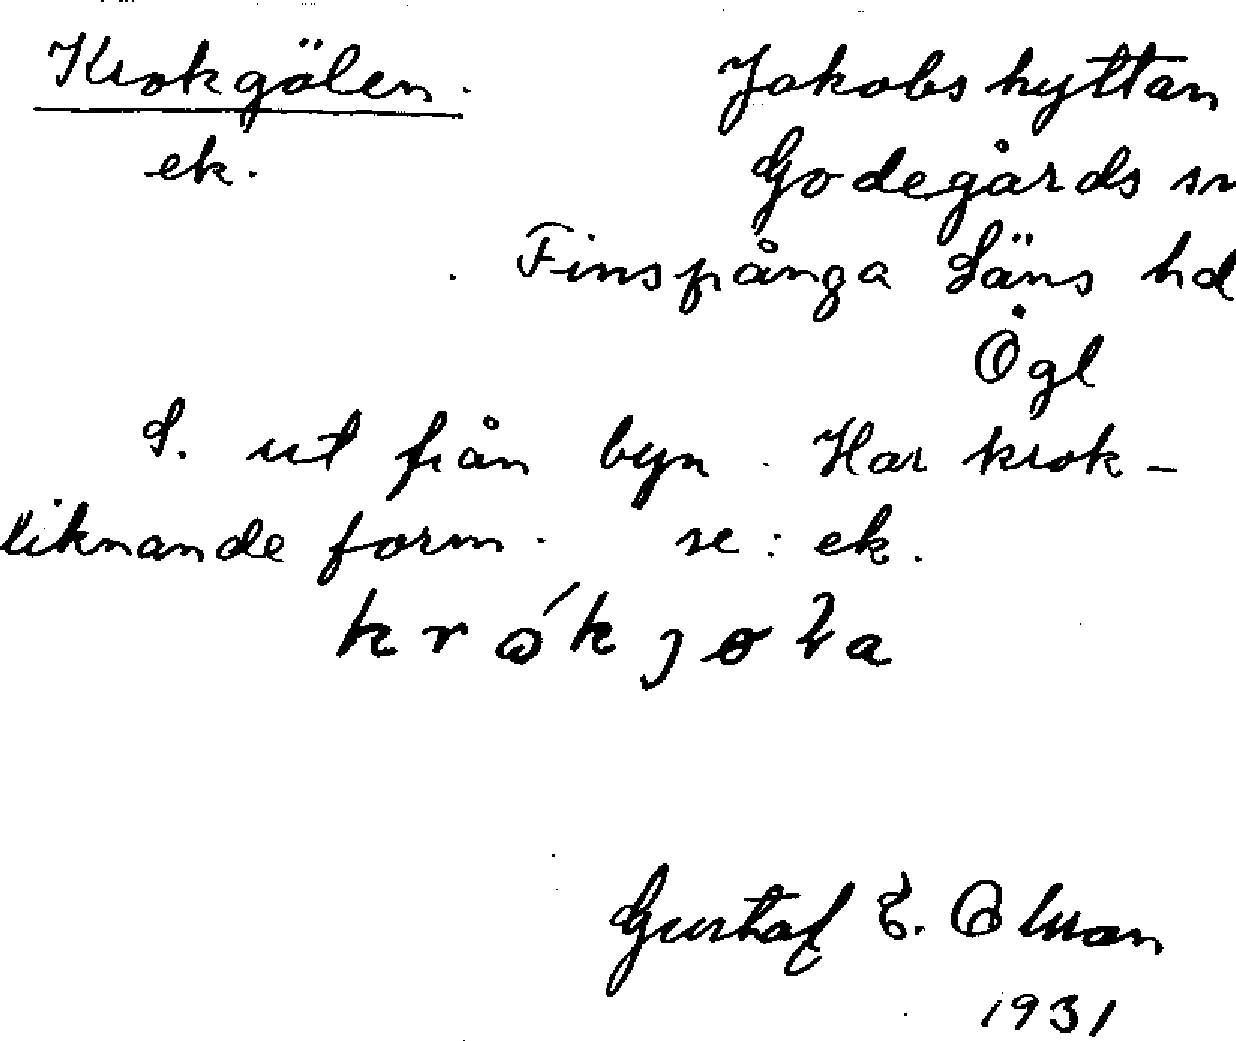 Krokgölen.
ek.
Jakobshyttan
Godegårds sn
Finspånga Läns hd
Ögl
S. ut från byn. Har krok-
liknande form. se: ek.
Gustaf E. Olsson
1931